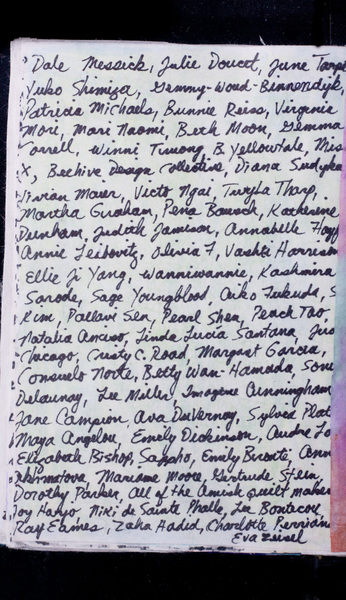 Dale Messick, Julie Doucet, June Tarpé
Yuko Shimizu, Gemmy-Woud-Binnendijk,
Patricia Michaels, Bunnie Reiss, Virginia
More, Mari Naomi, Beth Moon, Gemma
Correll, Winni Truong, B Yellowtale, Miss
X, Beehive Design Collective, Diana Sudyka
Vivian Maier, Victo Ngai, Twyla Tharp,
Martha Graham, Pena Bausch, Katherine
Dunham, Judith Jamison, Annabelle
Annie Leibovitz, Olivia F, Vashti Harrison
Ellie Ji Yang, Wanniwannie, Kashmira
Sarode, Sage Youngblood, Aiko Fukuda, S
Kim, Pallavi Sen, Pearl Shen, Peach Tao,
Natalia Linda Lucía Santana,
Chicago, Cristy C. Road, Margast Garcia,
Consuelo Norte, Betty Wan-Hamada, Soni
Delaunay, Lee Miller, Imagene Cunningham
Jane Campion, Ava DuVernay, Sylvea Plat
Maya Angelou, Emily Dickinson, Audre Lo
Elizabeth Bishop, Sappho, Emily Brontë, Ann
Akhmatova, Marianne Moore, Gertrude Stein,
Dorothy Parker, all of the Amish quilt maker
Joy Harjo Niki de Sainte Phalle, Lee Bontecou
Ray Eames, Zaha Hadid, Charlotte Perrian
Eva Zeisel